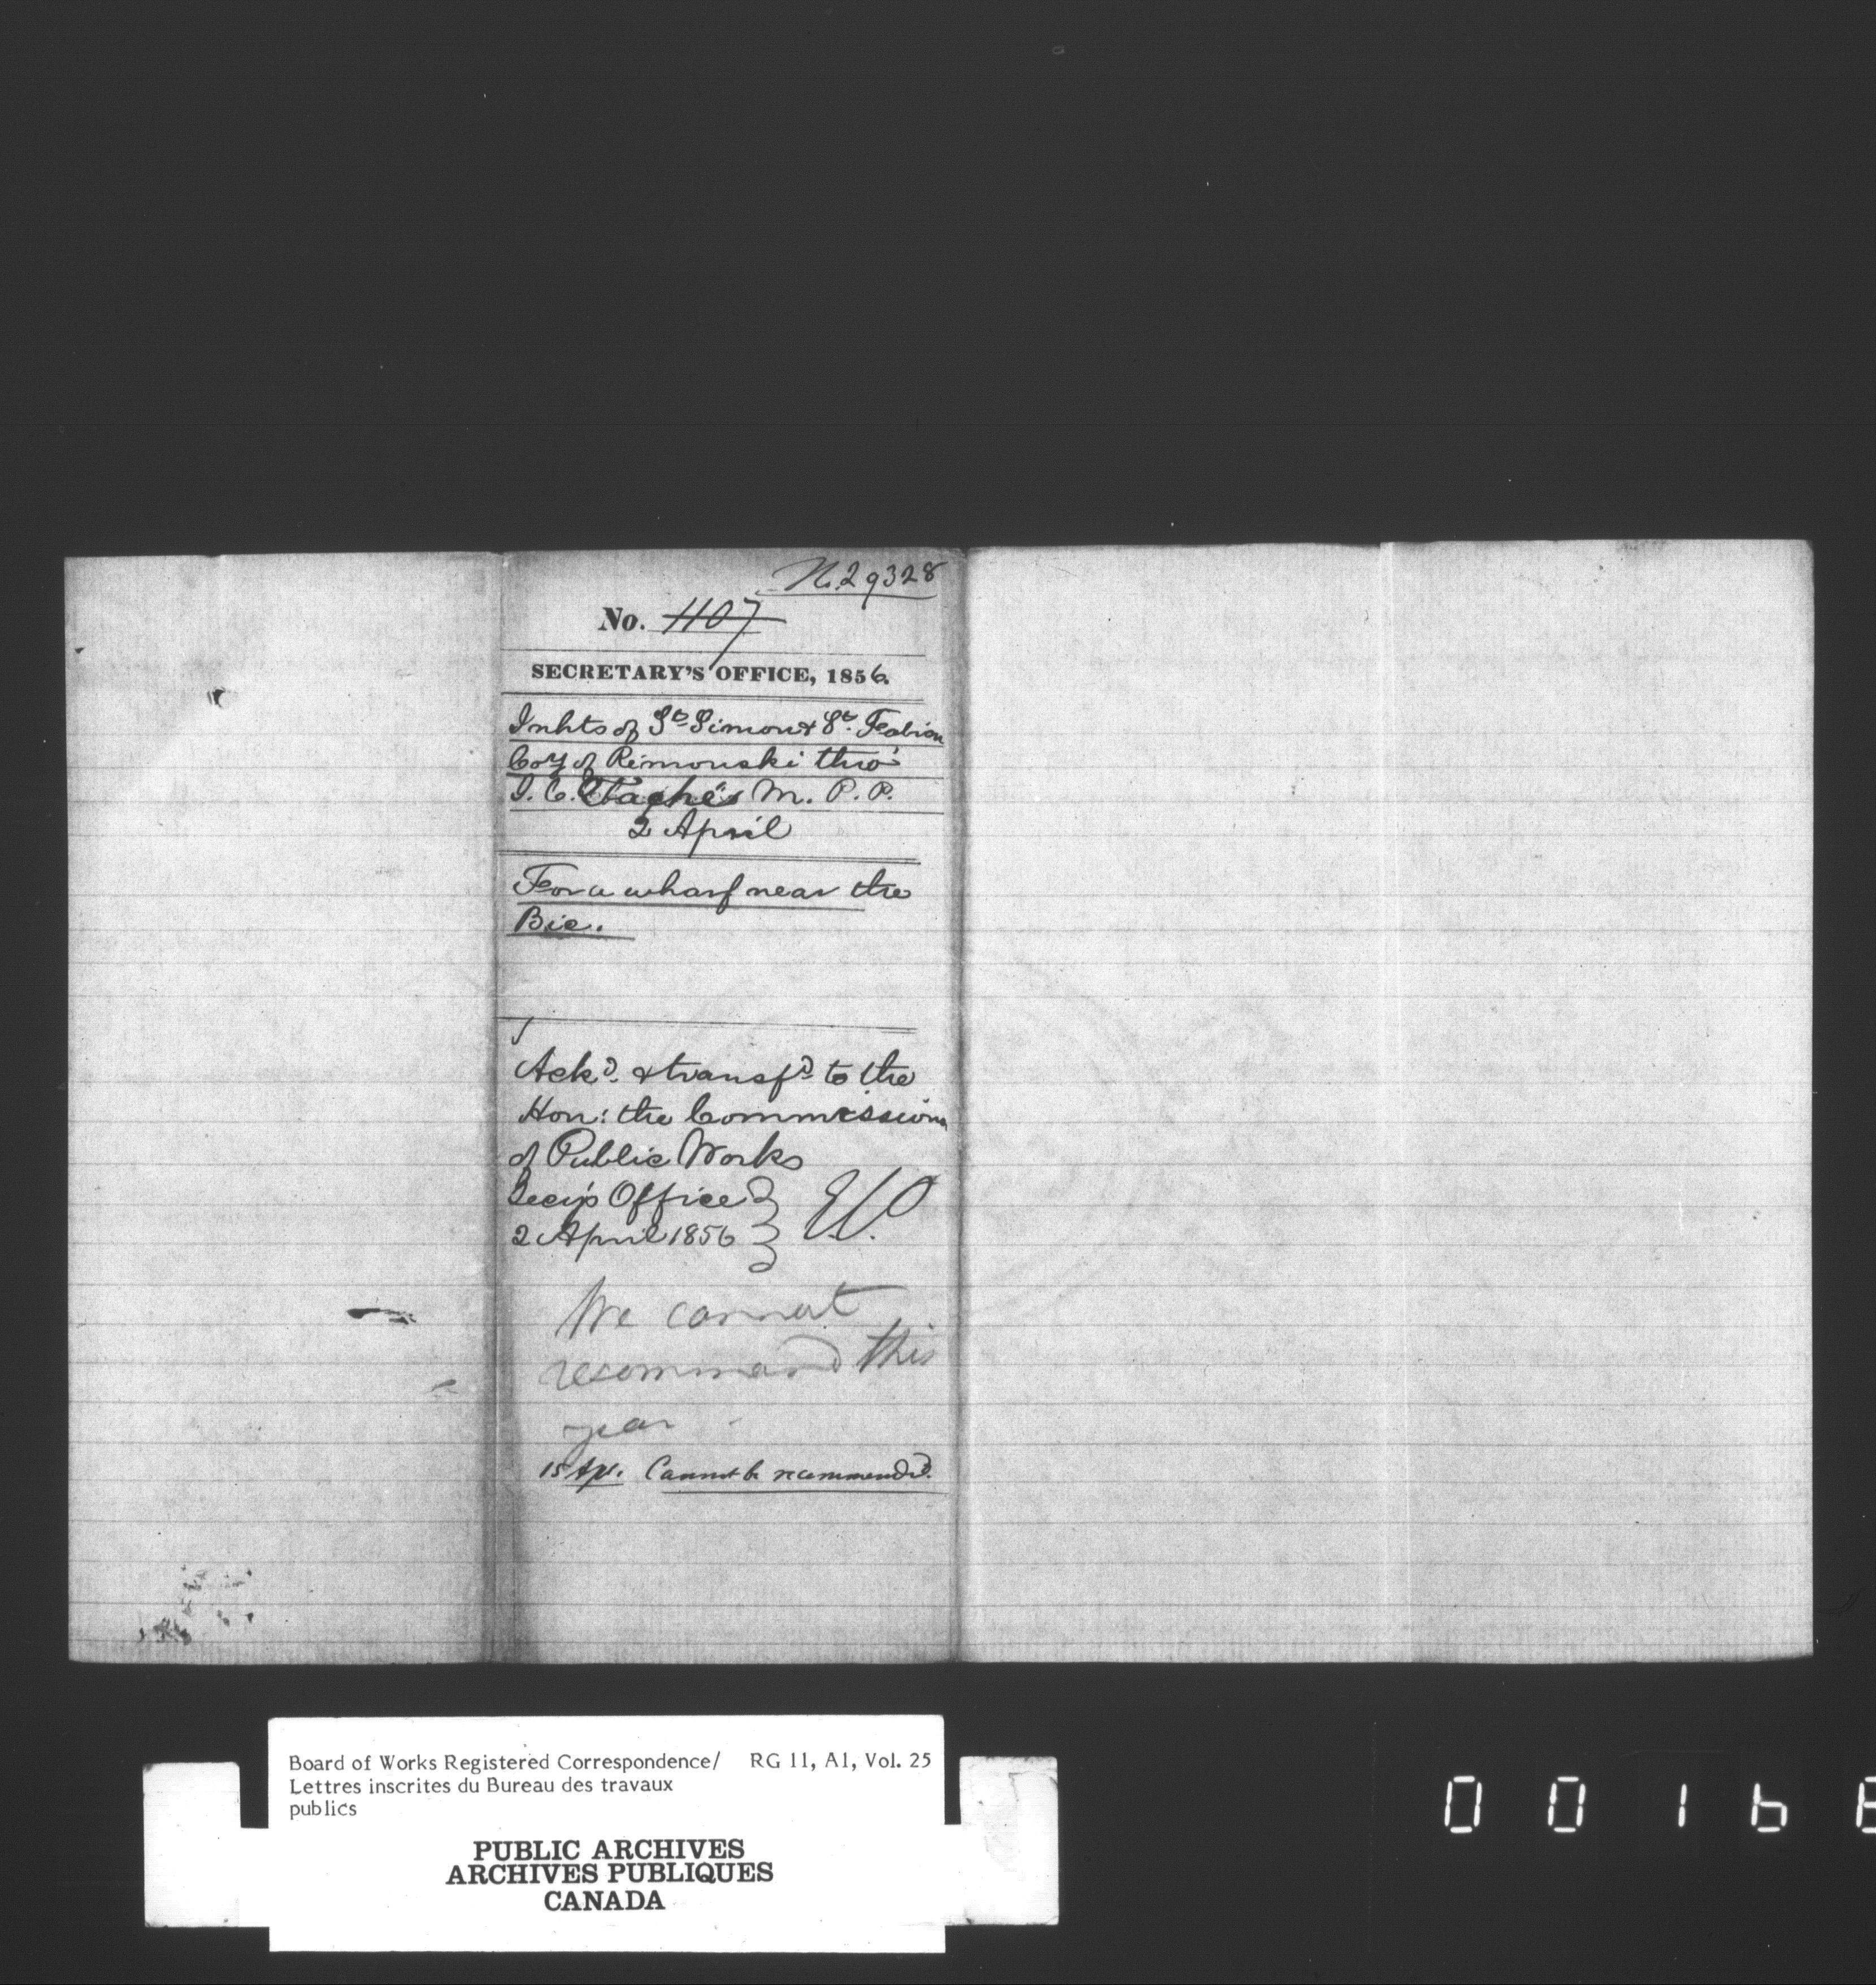 No. 29328
No. 1107
SECRETARY'S OFFICE, 1856.
Inhts of St. Simon & St. Fabien
Coy of Rimouski thro'
J. C. Taché's M. P. P.
2 April
For a wharf near the
Bic.
Ackd. & transfd. to the
Hon: the Commissioner
of Public Works
Secy's Office
2 April 1856
We cannot
recommend this
year
15 Apl. Cannot be recommended.
Board of Works Registered Correspondence/ RG 11, A1, Vol. 25
Lettres inscrites du Bureau des travaux
publics
PUBLIC ARCHIVES
ARCHIVES PUBLIQUES
CANADA
0 0 1 6